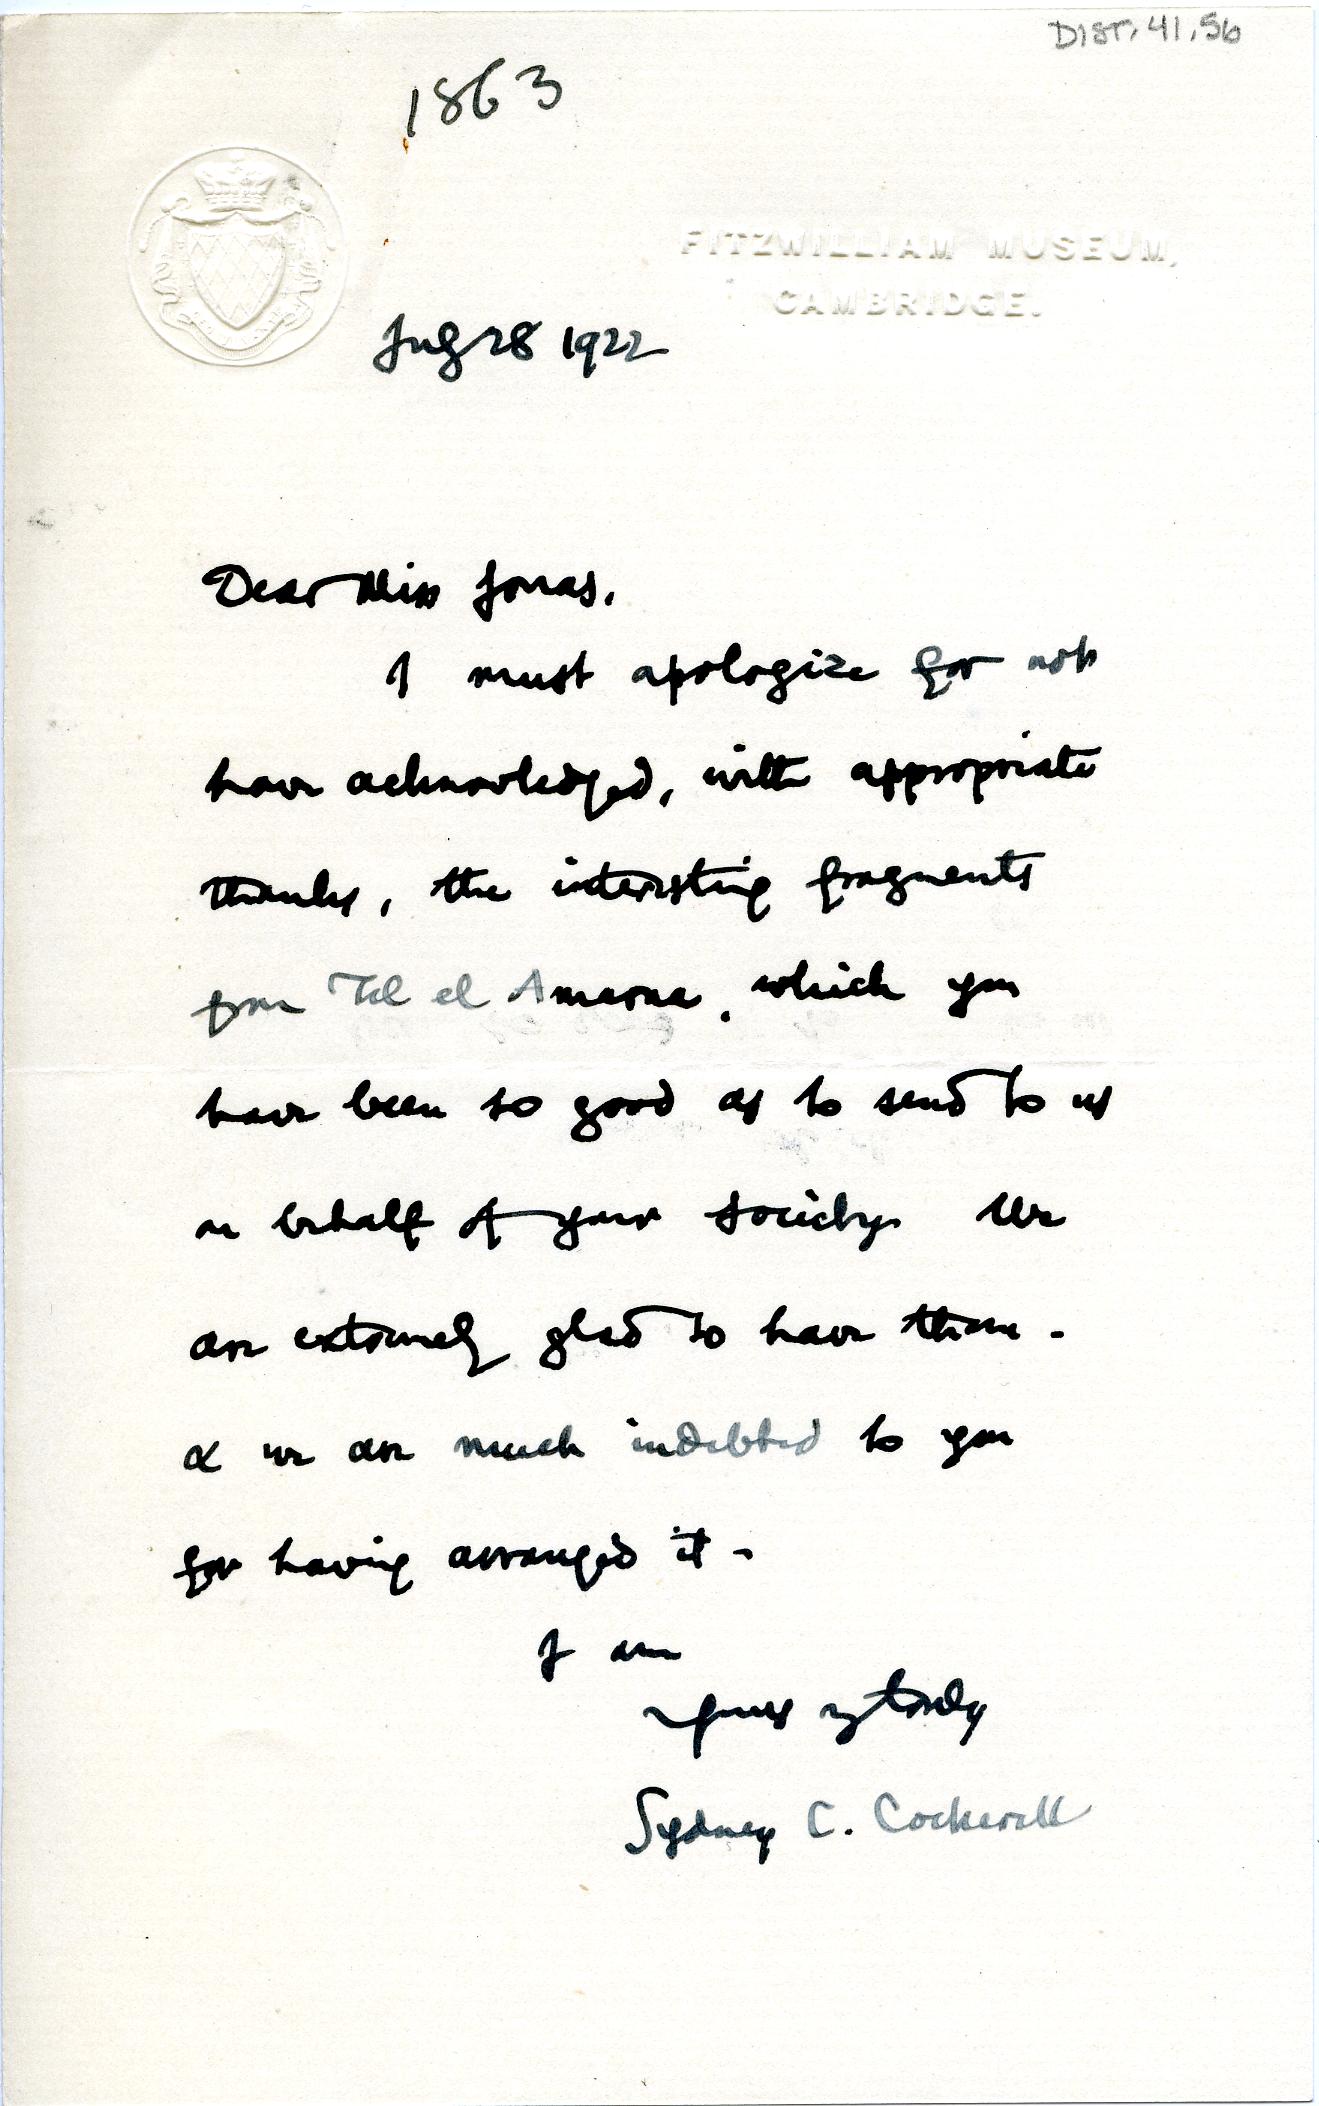 DIST. 41.56
1863
FITZWILLIAM MUSEUM,
CAMBRIDGE.
July 28 1922
Dear Miss Jonas,
I must apologize for not
have acknowledged, with appropriate
thanks, the interesting fragments
from Tel el Amarna, which you
have been so good as to send to us
on behalf of your Society. We
are extremely glad to have them -
& we are much indebted to you
for having arranged it -
I am
Yours very truly
Sydney C. Cockerell